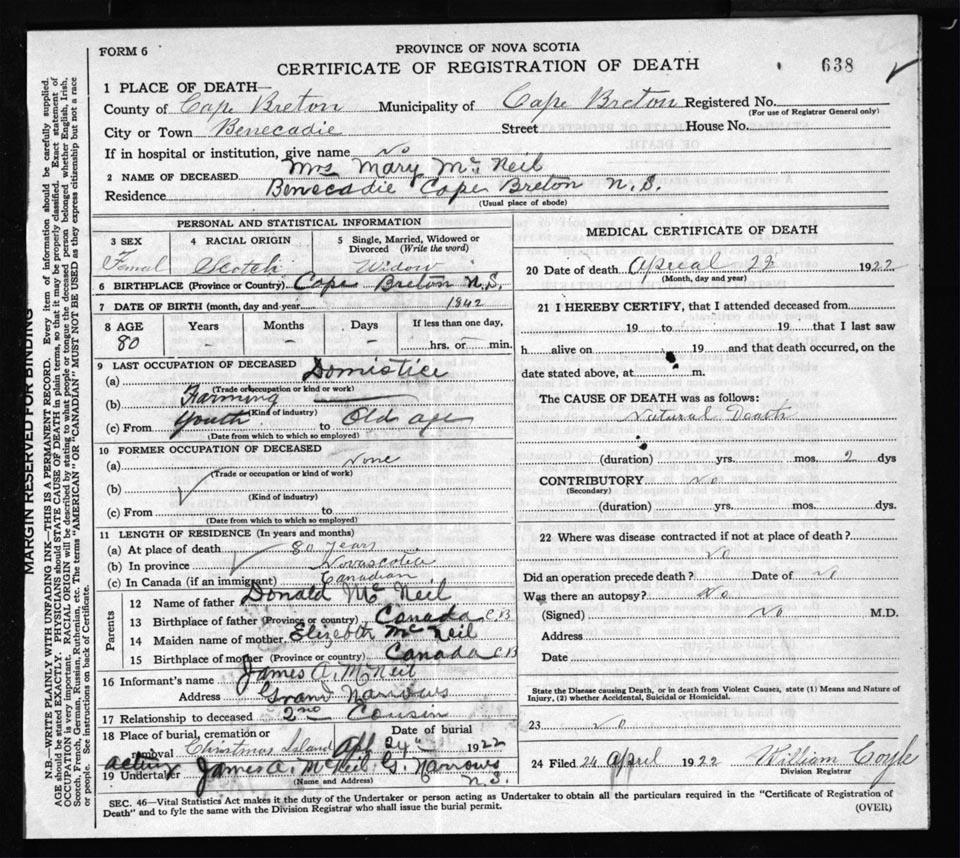 FORM 6
PROVINCE OF NOVA SCOTIA
CERTIFICATE OF REGISTRATION OF DEATH
638
1 PLACE OF DEATH—
County of Cape Breton Municipality of Cape Breton Registered No.
(For use of Registrar General only)
City or Town Benecadie Street House No.
If in hospital or institution, give name No
2 NAME OF DECEASED Mrs Mary Mc Neil
Residence Benecadie Cape Breton N.S.
(Usual place of abode)
PERSONAL AND STATISTICAL INFORMATION
3 SEX
Femal
4 RACIAL ORIGIN
Scotch
5 Single, Married, Widowed or
Divorced (Write the word)
Widow
6 BIRTHPLACE (Province or Country) Cape Breton N.S.
7 DATE OF BIRTH (month, day and year) 1842
8 AGE Years Months Days If less than one day,
80 - - - hrs. or min.
9 LAST OCCUPATION OF DECEASED
(a) Domistice
(Trade or occupation or kind of work)
(b) Farming
(Kind of industry)
(c) From Youth to Old age
(Date from which to which so employed)
10 FORMER OCCUPATION OF DECEASED
(a) None
(Trade or occupation or kind of work)
(b)
(Kind of industry)
(c) From to
(Date from which to which so employed)
11 LENGTH OF RESIDENCE (In years and months)
(a) At place of death 80 years
(b) In province Novascotia
(c) In Canada (if an immigrant) Canadian
Parents
12 Name of father Donald Mc Neil
13 Birthplace of father (Province or country) Canada C B
14 Maiden name of mother Elizebth McNeil
15 Birthplace of mother (Province or country) Canada C B
16 Informant's name James A. McNeil
Address Grand Narrows
17 Relationship to deceased 2nd Cousin
18 Place of burial, cremation or removal Christmas Island
Date of burial Apl 24 1922
acting
19 Undertaker James A. McNeil G. Narrows N.S.
(Name and Address)
MEDICAL CERTIFICATE OF DEATH
20 Date of death Apreal 22 1922
(Month, day and year)
21 I HEREBY CERTIFY, that I attended deceased from
19 to 19 that I last saw
h alive on 19 and that death occurred, on the
date stated above, at m.
The CAUSE OF DEATH was as follows:
Natural Death
(duration) yrs. mos. 2 dys
CONTRIBUTORY No
(Secondary)
(duration) yrs. mos. dys.
22 Where was disease contracted if not at place of death?
No
Did an operation precede death? Date of No
Was there an autopsy? No
(Signed) No M.D.
Address
Date
State the Disease causing Death, or in death from Violent Causes, state (1) Means and Nature of
Injury, (2) whether Accidental, Suicidal or Homicidal.
23 No
24 Filed 24 April 1922 William Coyle
Division Registrar
SEC. 46—Vital Statistics Act makes it the duty of the Undertaker or person acting as Undertaker to obtain all the particulars required in the "Certificate of Registration of
Death" and to fyle the same with the Division Registrar who shall issue the burial permit.
(OVER)
MARGIN RESERVED FOR BINDING
N.B.—WRITE PLAINLY WITH UNFADING INK—THIS IS A PERMANENT RECORD. Every item of information should be carefully supplied.
AGE should be stated EXACTLY. PHYSICIANS should STATE CAUSE OF DEATH in plain terms, so that it may be properly classified. Exact statement of
OCCUPATION is very important. RACIAL ORIGIN will be described by stating to what people or tongue the deceased person belonged whether English, Irish,
Scotch, French, German, Russian, Ruthenian, etc. The terms "AMERICAN" OR "CANADIAN" MUST NOT BE USED as they express citizenship but not a race
or people. See instructions on back of Certificate.